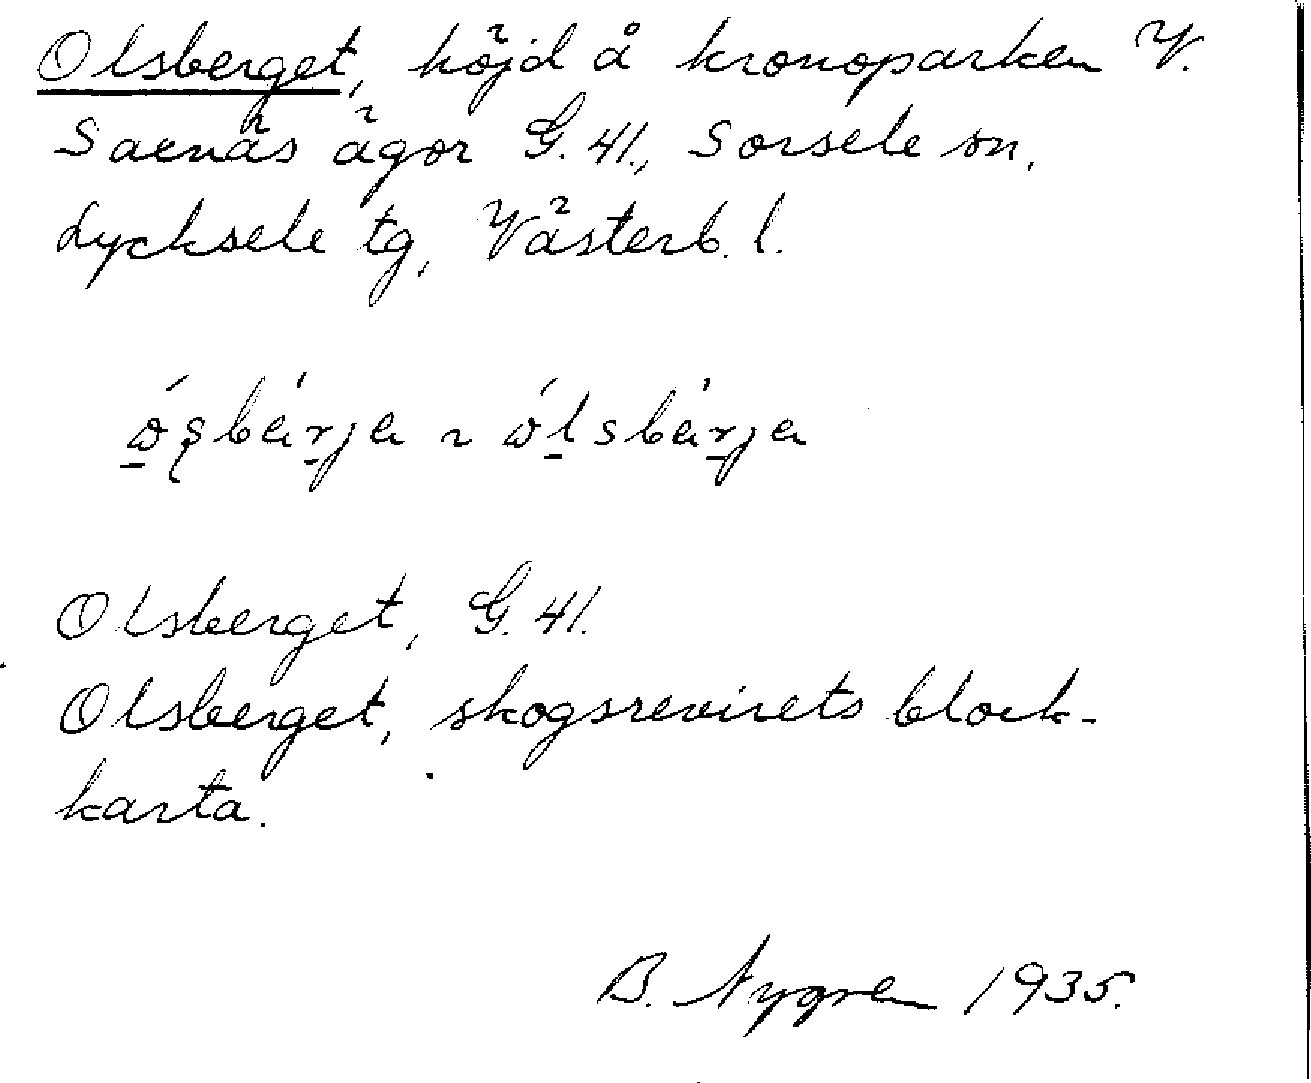 Olsberget, höjd å kronoparken V.
Saenäs ägor G. 41., Sorsele sn,
Lycksele tg, Västerb. l.
Olsberget, G. 41.
Olsberget, skogsrevirets block-
karta.
B. Nygren 1935.